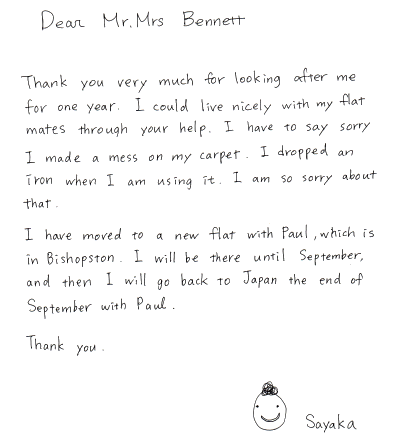 Dear Mr.Mrs Bennett
Thank you very much for looking after me
for one year. I could live nicely with my flat
mates through your help. I have to say sorry
I made a mess on my carpet. I dropped an
iron when I am using it. I am so sorry about
that.
I have moved to a new flat with Paul, which is
in Bishopston. I will be there until September,
and then I will go back to Japan the end of
September with Paul.
Thank you.
Sayaka